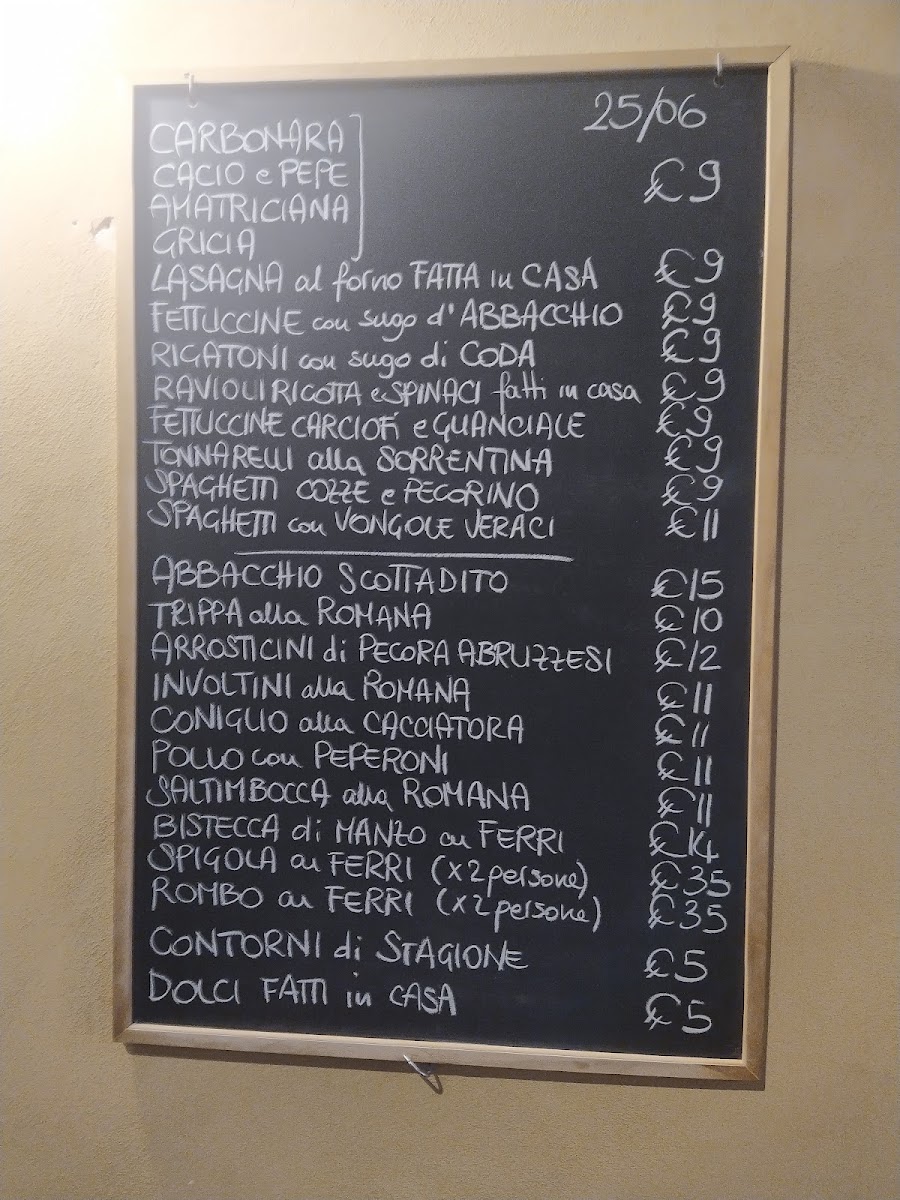 25/06
CARBONARA
CACIO e PEPE €9
AMATRICIANA
GRICIA
LASAGNA al forno FATTA in CASA €9
FETTUCCINE con sugo d'ABBACCHIO €9
RIGATONI con sugo di CODA €9
RAVIOLI RICOTTA e SPINACI fatti in casa €9
FETTUCCINE CARCIOFI e GUANCIALE €9
TONNARELLI alla SORRENTINA €9
SPAGHETTI COZZE e PECORINO €9
SPAGHETTI con VONGOLE VERACI €11
ABBACCHIO SCOTTADITO €15
TRIPPA alla ROMANA €10
ARROSTICINI di PECORA ABRUZZESI €12
INVOLTINI alla ROMANA €11
CONIGLIO alla CACCIATORA €11
POLLO con PEPERONI €11
SALTIMBOCCA alla ROMANA €11
BISTECCA di MANZO ai FERRI €14
SPIGOLA ai FERRI (x2persone) €35
ROMBO ai FERRI (x2persone) €35
CONTORNI di STAGIONE €5
DOLCI FATTI in CASA €5